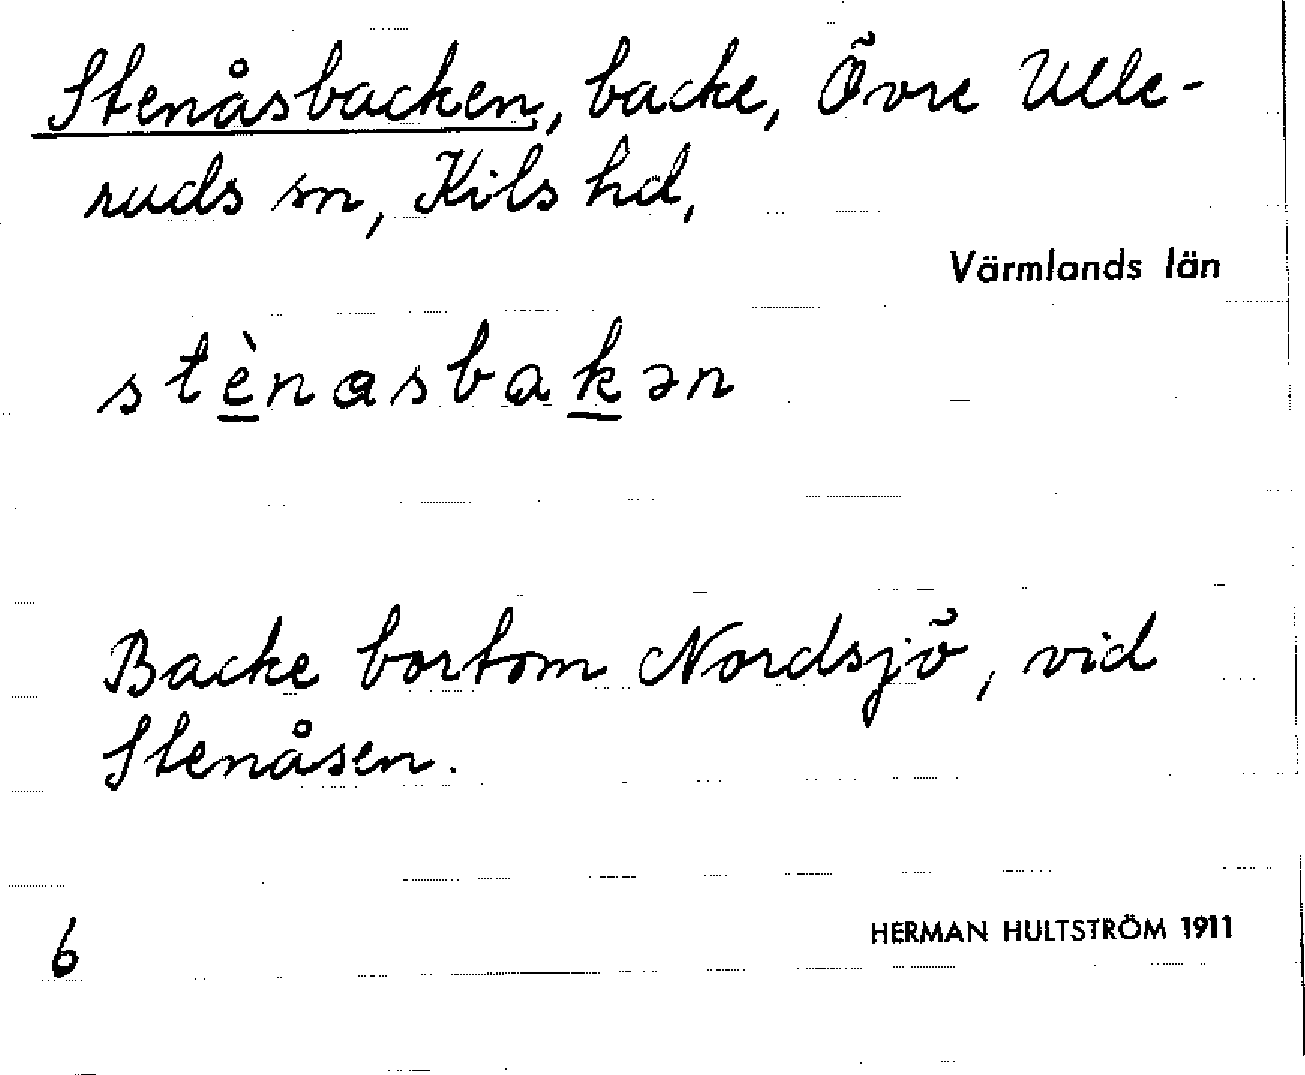 Stenåsbacken, backe, Övre Ulle-
ruds sn, Kils hd,
Värmlands län
stènasbakən
Backe bortom Nordsjö, vid
Stenåsen.
6
HERMAN HULTSTRÖM 1911